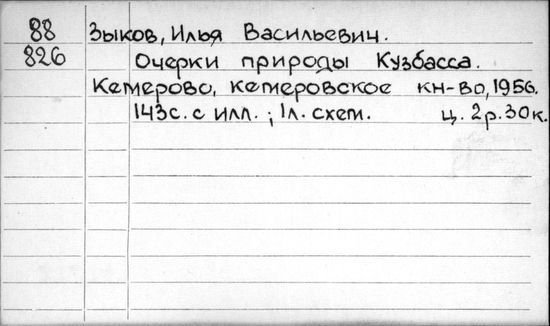 88 Зыков, Илья Васильевич.
826 Очерки природы Кузбасса.
Кемерово, Кемеровское кн-во, 1956.
143с. с илл. ; 1л. схем. ц. 2р. 30к.